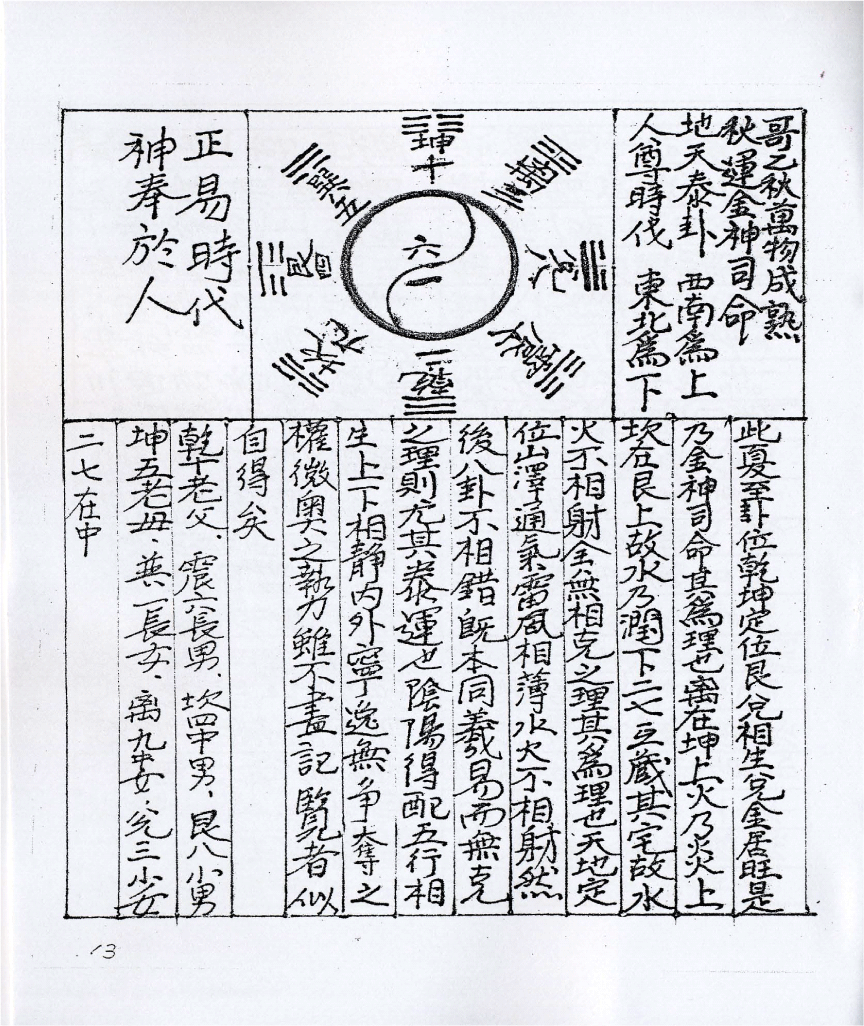 哥乙秋萬物成熟
秋運金神司命
地天泰卦 西南爲上
人尊時代 東北爲下
坤十
巽五
艮四
兌八
六一
正易時代
神奉於人
此夏至卦位乾坤定位艮兌相生兌金居旺是
乃金神司命其爲理也离在坤上火乃炎上
坎在艮上故水乃潤下二七互藏其宅故水
火不相射全無相克之理其爲理也天地定
位山澤通氣雷風相薄水火不相射然
後八卦不相錯旣本同羲易而無克
之理則尤其泰運也陰陽得配五行相
生上下相靜内外寧逸無爭奪之
權微奧之執力雖不盡記 賢者似
自得矣
乾十老父、震六長男、坎四中男、艮八小男
坤五老母、巽一長女、离九中女、兌三小女
二七在中
13